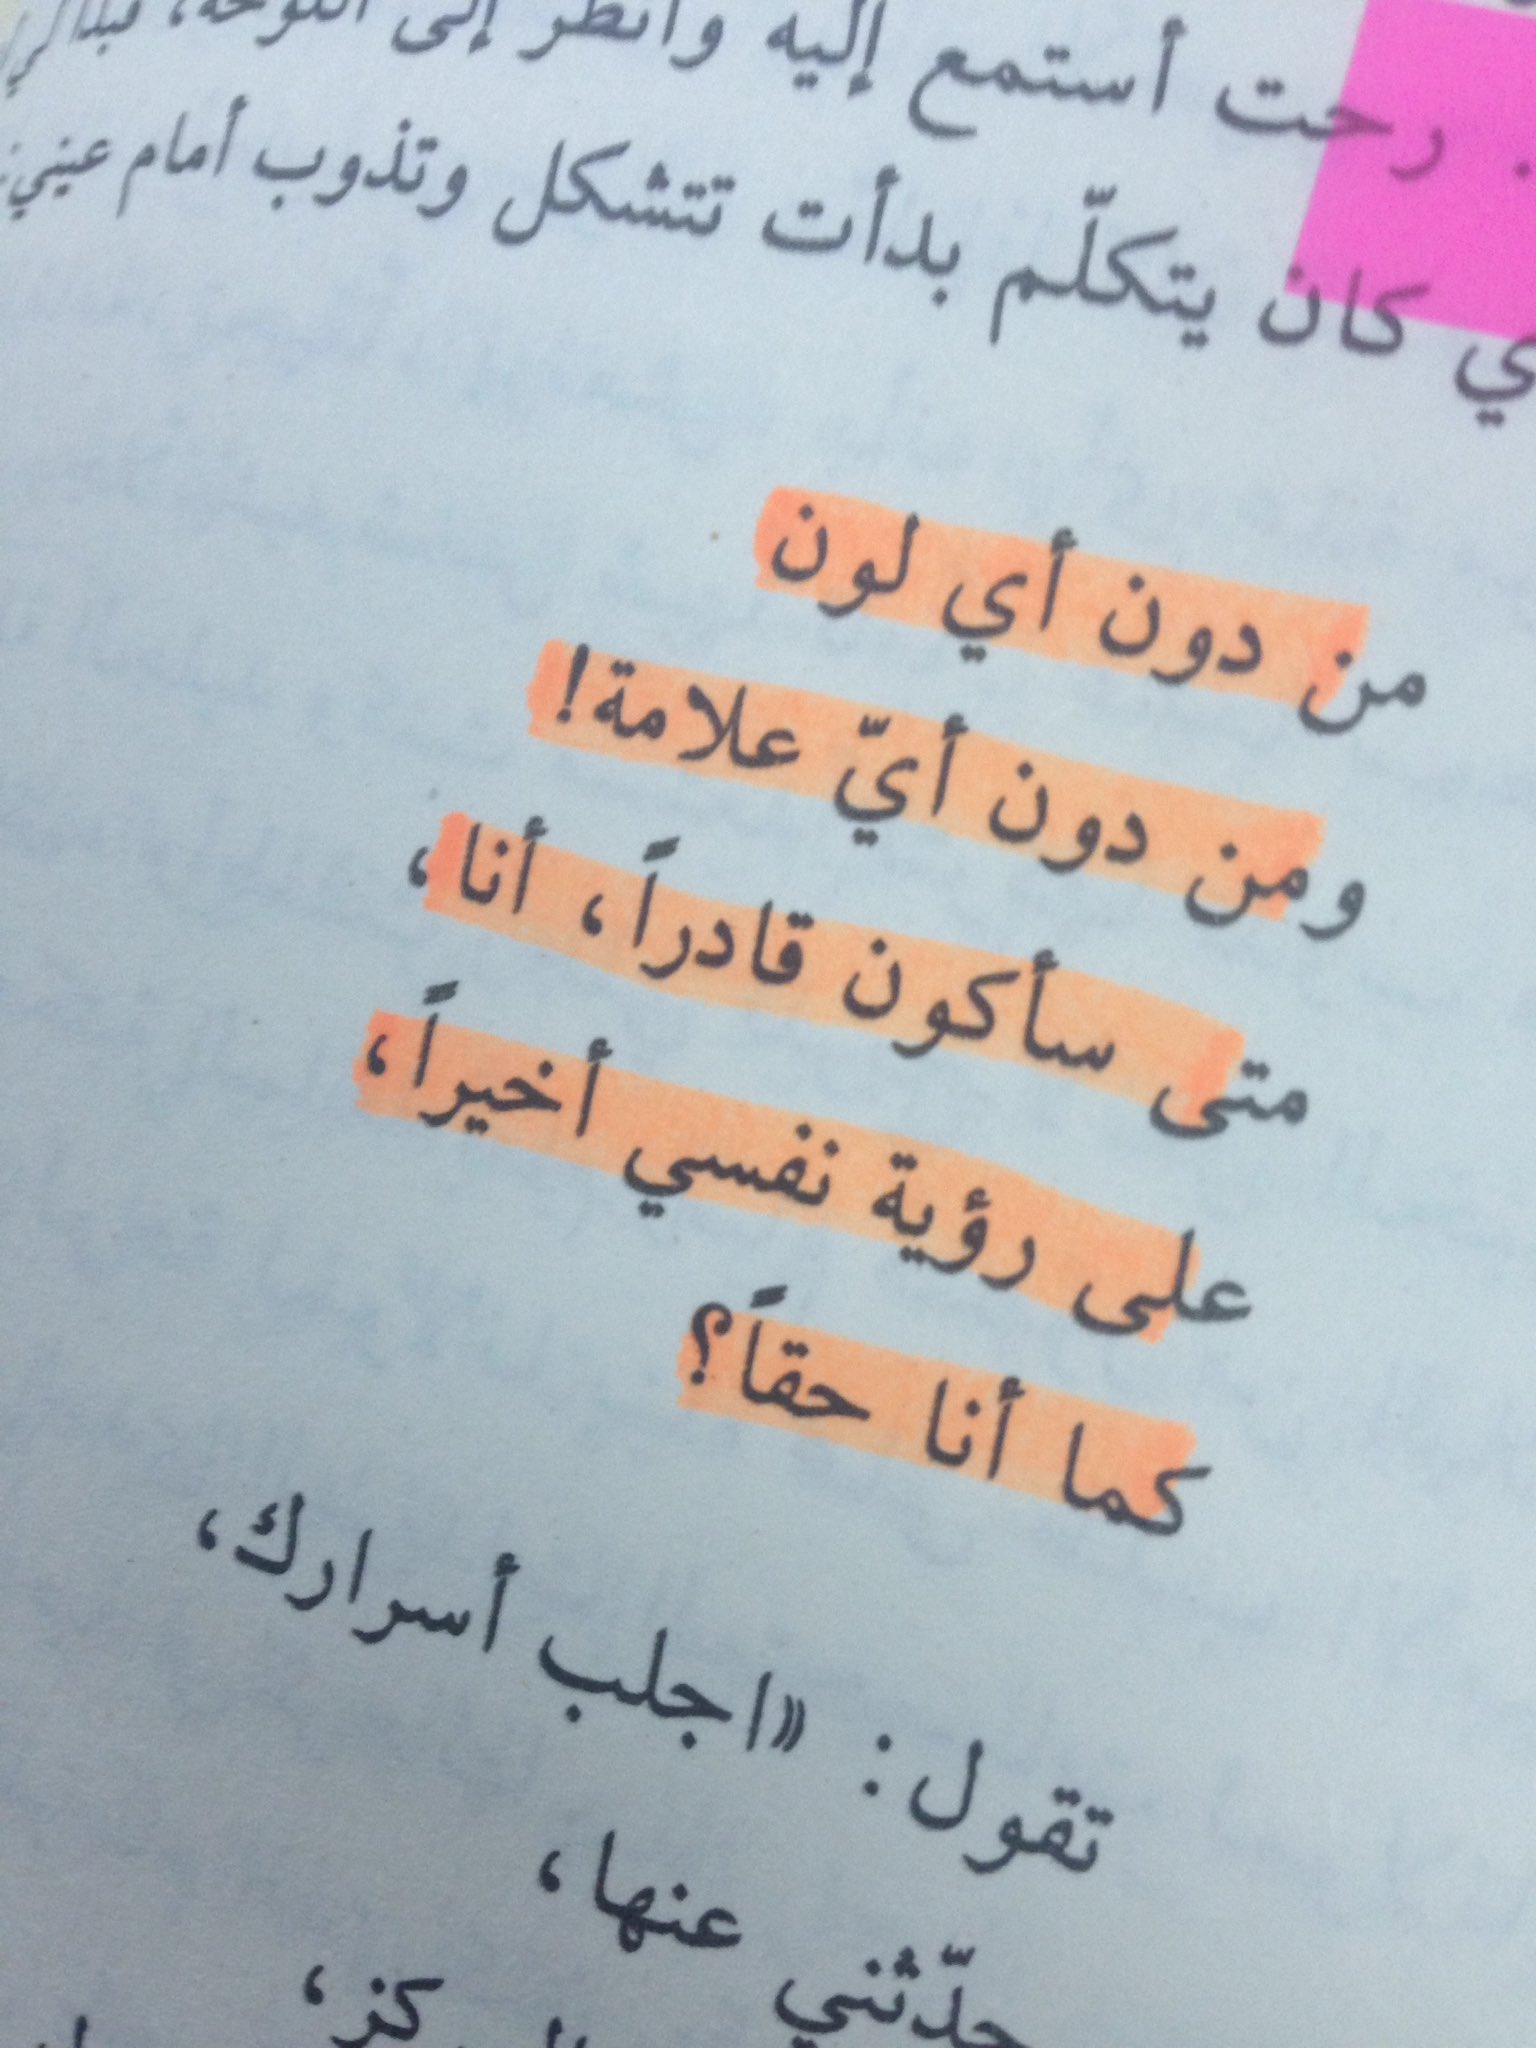 رحت أستمع إليه وأنظر إلى اللوحة،
كان يتكلّم بدأت تتشكل وتذوب أمام عيني:
من دون أي لون
ومن دون أيّ علامة!
متى سأكون قادراً، أنا،
على رؤية نفسي أخيراً،
كما أنا حقاً؟
تقول: «اجلب أسرارك،
حدّثني عنها،